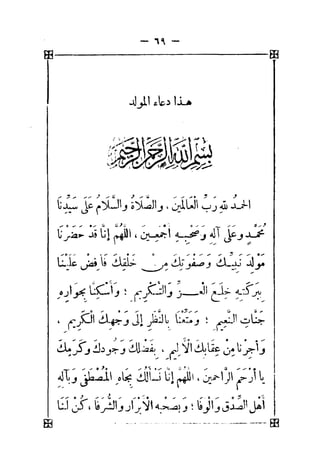 — ٦٩ —
هذا دعاء المولد
بِسْمِ اللَّهِ الرَّحْمَنِ الرَّحِيمِ
الحمدُ للهِ رَبِّ العالمينَ ، والصَّلاةُ والسَّلامُ على سَيِّدِنا
مُحَمَّدٍ وعلى آلِهِ وصَحْبِهِ أجْمَعِينَ ، اللَّهُمَّ إنَّا قَدْ حَضَرْنا
مَوْلِدَ نَبِيِّكَ وَصَفْوَتِكَ مِنْ خَلْقِكَ فَأَفِضْ عَلَيْنا
بِبَرَكَتِهِ خِلَعَ العِزِّ والتَّكْرِيمِ ؛ وأسْكِنَّا بِجِوارِهِ
جَنَّاتِ النَّعِيمِ ؛ وَمَتِّعْنا بالنَّظَرِ إلى وَجْهِكَ الكَرِيمِ ،
وَأجِرْنا مِنْ عِقابِكَ الألِيمِ ، بِفَضْلِكَ وَجُودِكَ وَكَرَمِكَ
يا أرْحَمَ الرَّاحِمِينَ ، اللَّهُمَّ إنَّا نَسْألُكَ بِجاهِ المُصْطَفَى وبآلِهِ
أهْلِ الصِّدْقِ والوَفا ؛ وبِصَحْبِهِ الأبْرارِ والشُّرَفا ، كُنْ لَنا